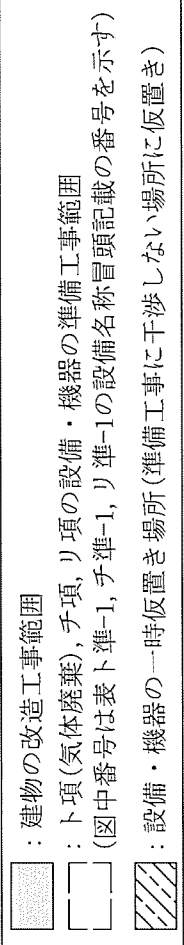 ：建物の改造工事範囲
：ト項(気体廃棄), チ項, リ項の設備・機器の準備工事範囲
(図中番号は表ト準-1, チ準-1, リ準-1の設備名称冒頭記載の番号を示す)
：設備・機器の一時仮置き場所(準備工事に干渉しない場所に仮置き)